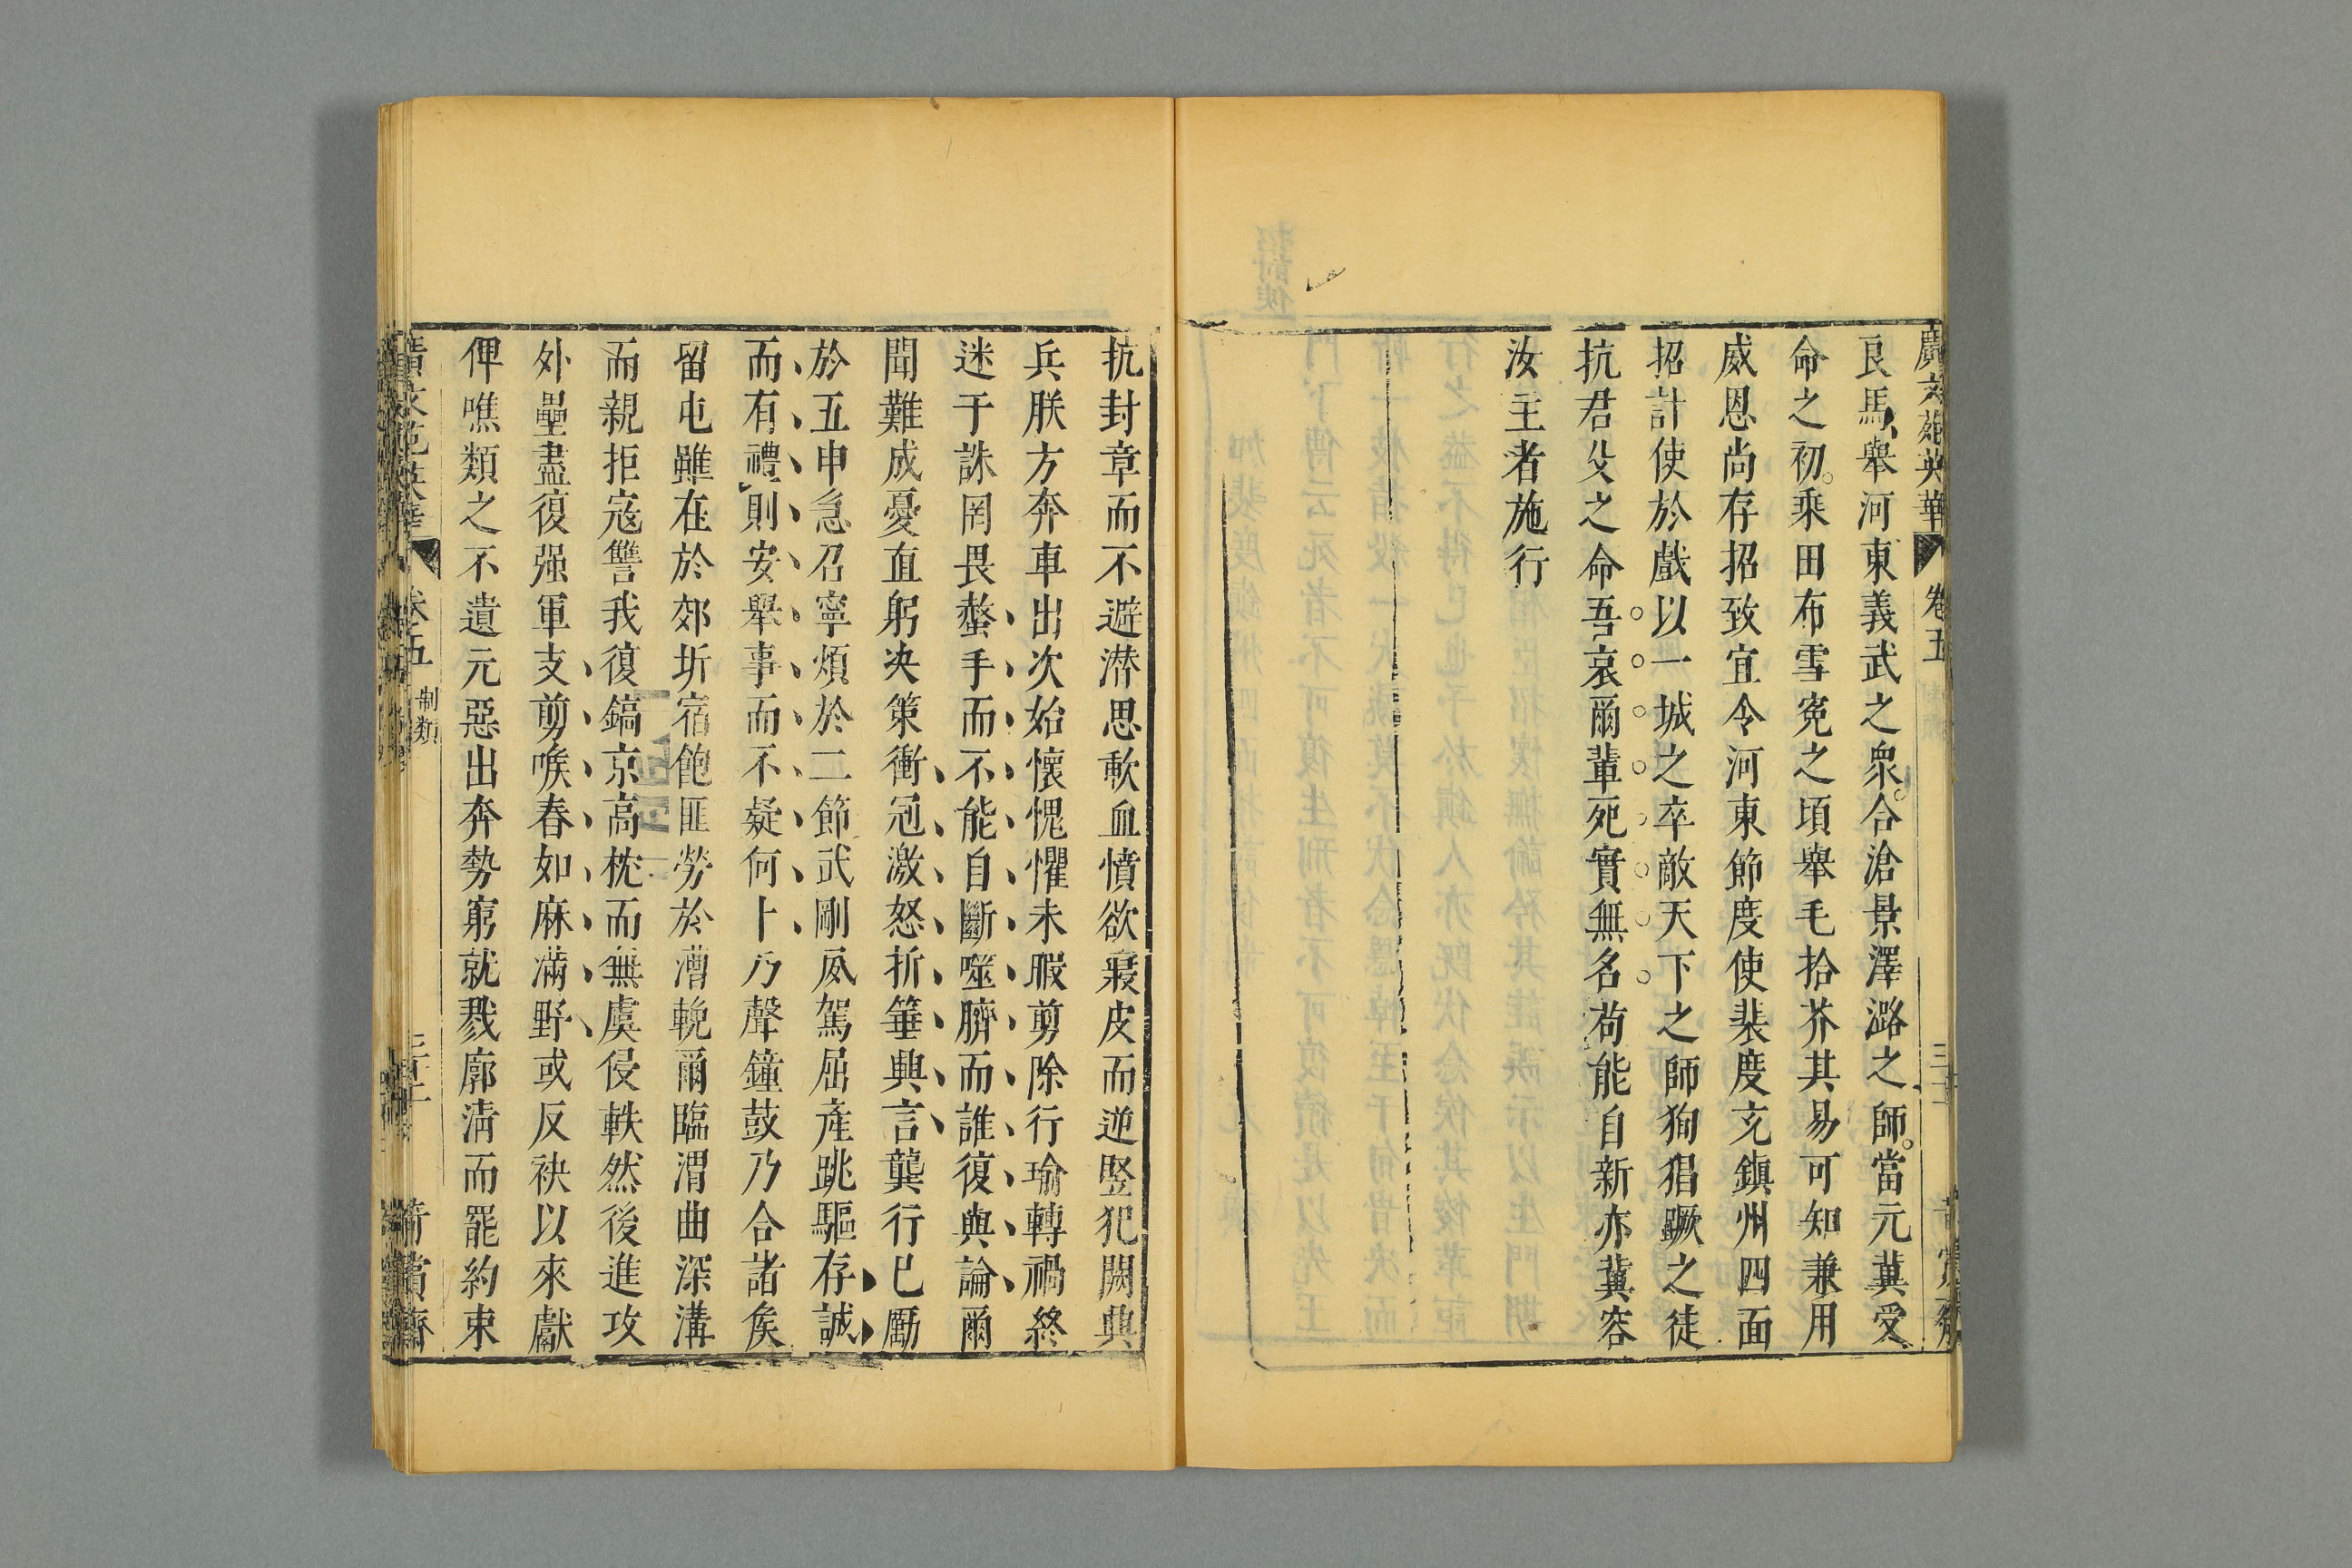 廣文苑英華 卷五
良馬舉河東義武之衆合滄景澤潞之師當元冀受
命之初乘田布雪寃之頃舉毛拾芥其易可知兼用
威恩尚存招致宜令河東節度使裴度充鎮州四面
招計使於戲以一城之卒敵天下之師狥猖蹶之徒
抗君父之命吾哀爾輩死實無名苟能自新亦冀容
汝主者施行
抗封章而不避潜思歃血憤欲寢皮而逆竪犯闕典
兵朕方奔車出次始懷愧懼未暇剪除行瑜轉禍終
迷于誅罔畏螫手而不能自斷噬臍而誰復與論爾
聞難成憂直躬決策衝冠激怒折箠興言龔行已勵
於五申急召寧煩於二節武剛夙駕屈產跳驅存誠
而有禮則安舉事而不疑何卜乃聲鐘鼓乃合諸矦
留屯雖在於郊圻宿飽匪勞於漕輓爾臨渭曲深溝
而親拒寇讐我復鎬京高枕而無虞侵軼然後進攻
外壘盡復强軍支剪喉春如麻滿野或反袂以來獻
俾噍類之不遺元惡出奔勢窮就戮廓淸而罷約束
卷五 制類